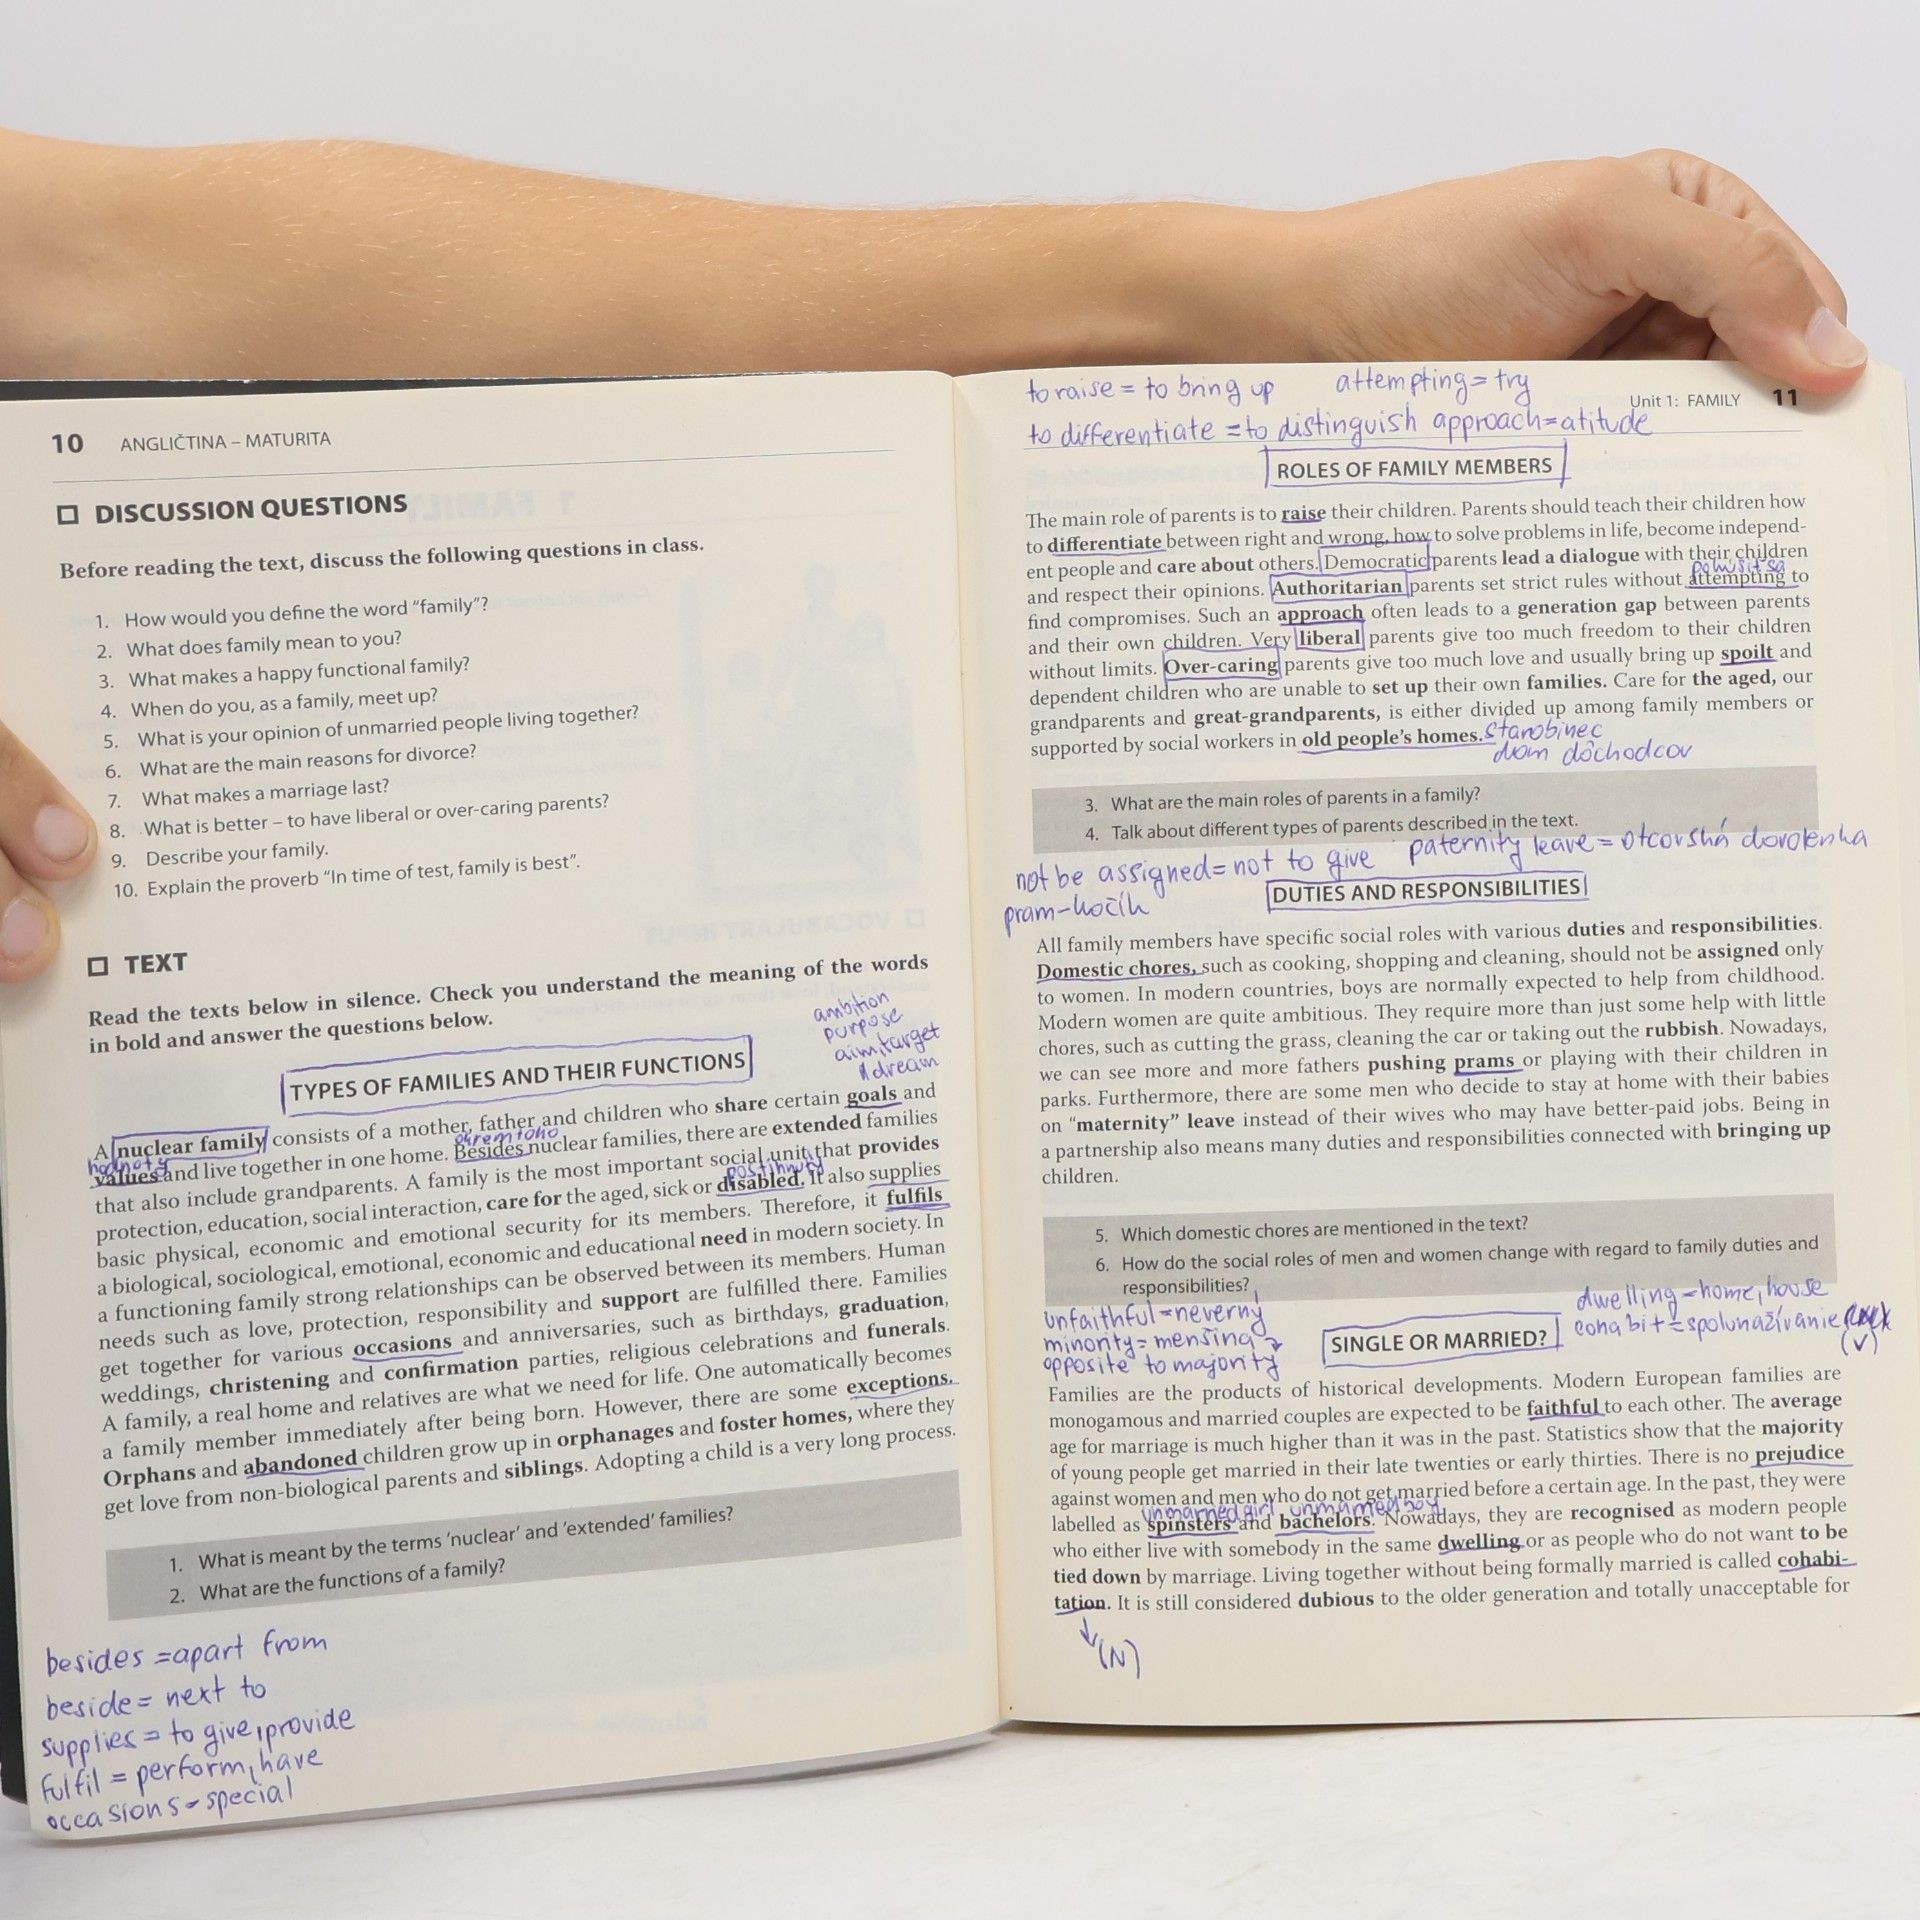 10 ANGLIČTINA – MATURITA
DISCUSSION QUESTIONS
Before reading the text, discuss the following questions in class.
1. How would you define the word “family”?
2. What does family mean to you?
3. What makes a happy functional family?
4. When do you, as a family, meet up?
5. What is your opinion of unmarried people living together?
6. What are the main reasons for divorce?
7. What makes a marriage last?
8. What is better – to have liberal or over-caring parents?
9. Describe your family.
10. Explain the proverb “In time of test, family is best”.
TEXT
Read the texts below in silence. Check you understand the meaning of the words
in bold and answer the questions below.
ambition
purpose
aim, target
dream
TYPES OF FAMILIES AND THEIR FUNCTIONS
A nuclear family consists of a mother, father and children who share certain goals and
okrem toho
hodnoty
values and live together in one home. Besides nuclear families, there are extended families
that also include grandparents. A family is the most important social unit that provides
postihnutý
protection, education, social interaction, care for the aged, sick or disabled. It also supplies
basic physical, economic and emotional security for its members. Therefore, it fulfils
a biological, sociological, emotional, economic and educational need in modern society. In
a functioning family strong relationships can be observed between its members. Human
needs such as love, protection, responsibility and support are fulfilled there. Families
get together for various occasions and anniversaries, such as birthdays, graduation,
weddings, christening and confirmation parties, religious celebrations and funerals.
A family, a real home and relatives are what we need for life. One automatically becomes
a family member immediately after being born. However, there are some exceptions.
Orphans and abandoned children grow up in orphanages and foster homes, where they
get love from non-biological parents and siblings. Adopting a child is a very long process.
1. What is meant by the terms ’nuclear’ and ’extended’ families?
2. What are the functions of a family?
besides = apart from
beside = next to
supplies = to give, provide
fulfil = perform, have
occasions = special
to raise = to bring up attempting = try
Unit 1: FAMILY 11
to differentiate = to distinguish approach = atitude
ROLES OF FAMILY MEMBERS
The main role of parents is to raise their children. Parents should teach their children how
to differentiate between right and wrong, how to solve problems in life, become independ-
ent people and care about others. Democratic parents lead a dialogue with their children
pokúsiť sa
and respect their opinions. Authoritarian parents set strict rules without attempting to
find compromises. Such an approach often leads to a generation gap between parents
and their own children. Very liberal parents give too much freedom to their children
without limits. Over-caring parents give too much love and usually bring up spoilt and
dependent children who are unable to set up their own families. Care for the aged, our
grandparents and great-grandparents, is either divided up among family members or
supported by social workers in old people’s homes. starobinec
dom dôchodcov
3. What are the main roles of parents in a family?
4. Talk about different types of parents described in the text.
not be assigned = not to give paternity leave = otcovská dovolenka
pram – kočík
DUTIES AND RESPONSIBILITIES
All family members have specific social roles with various duties and responsibilities.
Domestic chores, such as cooking, shopping and cleaning, should not be assigned only
to women. In modern countries, boys are normally expected to help from childhood.
Modern women are quite ambitious. They require more than just some help with little
chores, such as cutting the grass, cleaning the car or taking out the rubbish. Nowadays,
we can see more and more fathers pushing prams or playing with their children in
parks. Furthermore, there are some men who decide to stay at home with their babies
on “maternity” leave instead of their wives who may have better-paid jobs. Being in
a partnership also means many duties and responsibilities connected with bringing up
children.
5. Which domestic chores are mentioned in the text?
6. How do the social roles of men and women change with regard to family duties and
responsibilities?
unfaithful = neverný
minority = menšina
opposite to majority
dwelling = home, house
cohabit = spolunažívanie
(v)
SINGLE OR MARRIED?
Families are the products of historical developments. Modern European families are
monogamous and married couples are expected to be faithful to each other. The average
age for marriage is much higher than it was in the past. Statistics show that the majority
of young people get married in their late twenties or early thirties. There is no prejudice
against women and men who do not get married before a certain age. In the past, they were
unmarried girl unmarried boy
labelled as spinsters and bachelors. Nowadays, they are recognised as modern people
who either live with somebody in the same dwelling or as people who do not want to be
tied down by marriage. Living together without being formally married is called cohabi-
tation. It is still considered dubious to the older generation and totally unacceptable for
(N)